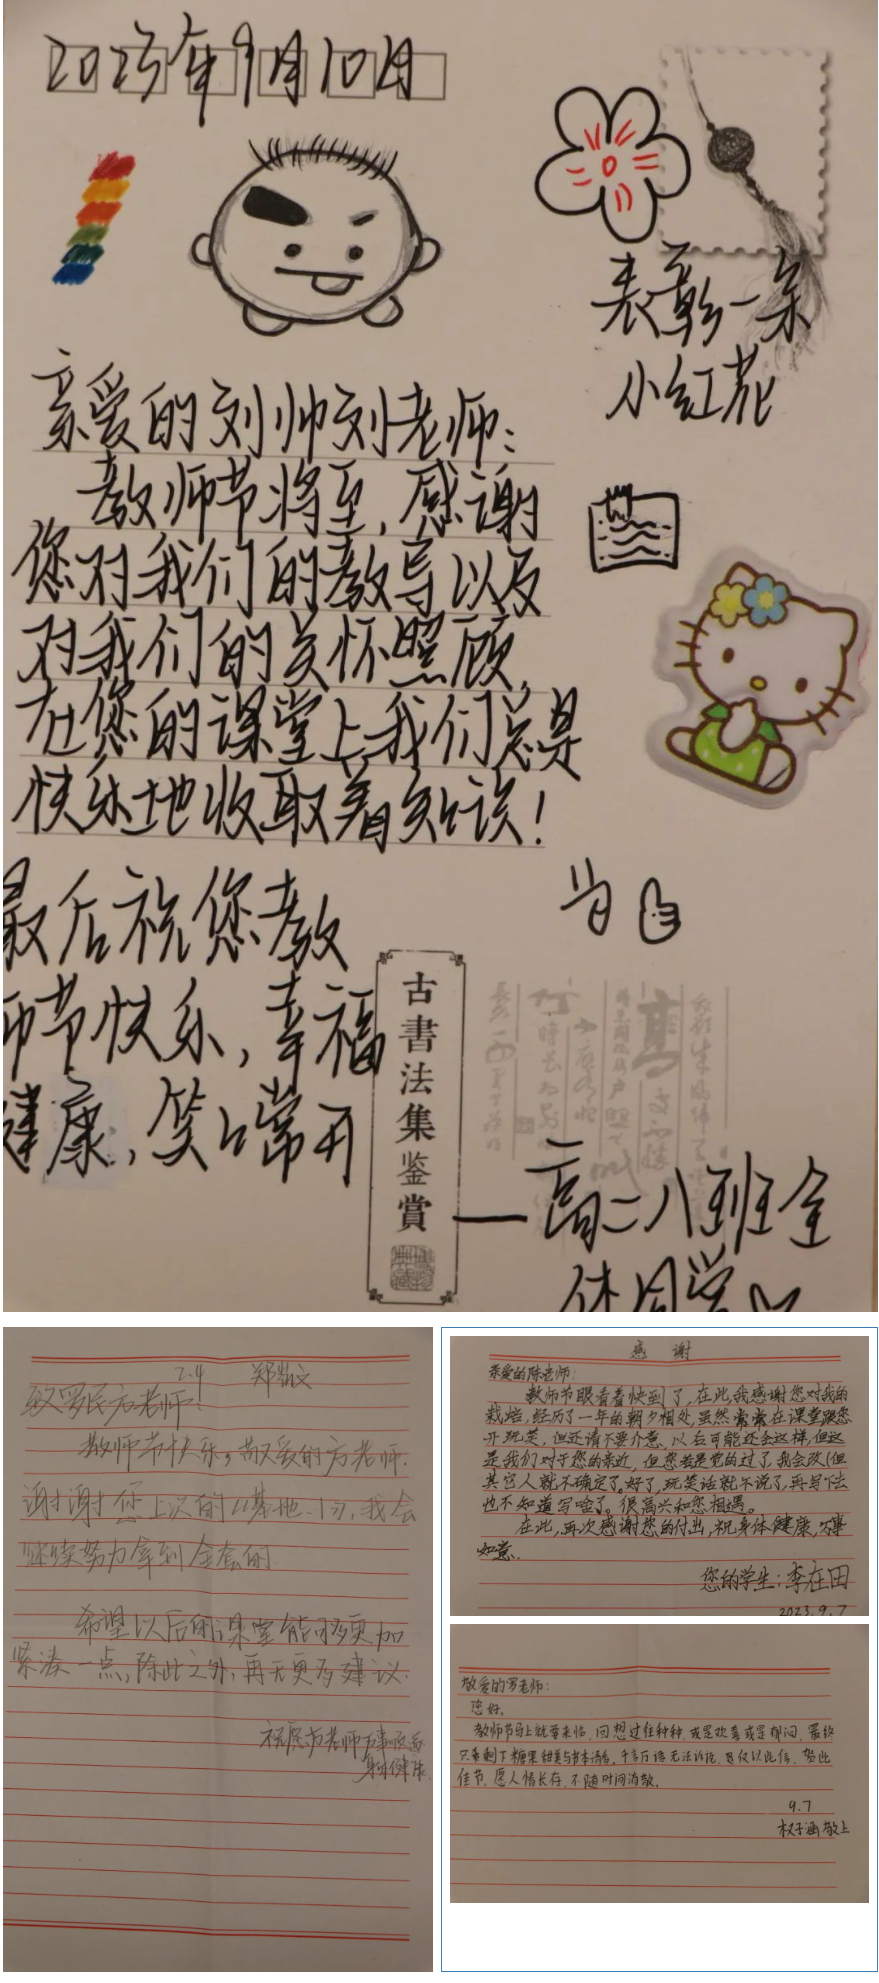 2023年9月10日
表彰一朵
小红花
亲爱的刘帅刘老师：
教师节将至，感谢
您对我们的教导以及
对我们的关怀照顾，
在您的课堂上我们总是
快乐地收取着知识！
最后祝您教
师节快乐，幸福
健康，笑口常开
古書法集鉴賞
—高二八班全
体同学
2.4
致罗民方老师：
教师节快乐，敬爱的方老师.
谢谢您上次的
继续努力拿到全套的
希望以后的课堂能够更加
紧凑一点，除此之外，再无更多建议.
祝愿方老师万事顺意
身体健康
感 谢
亲爱的陈老师：
教师节眼看着快到了，在此，我感谢您对我的
栽培，经历了一年的朝夕相处，虽然常常在课堂跟您
开玩笑，但还请不要介意，以后可能还会这样，但这
是我们对于您的亲近，但您若是觉的过了，我会改（但
其它人就不确定了。好了，玩笑话就不说了，再写下去
也不知道写啥了。很高兴和您相遇。
在此，再次感谢您的付出，祝身体健康，万事
如意.
您的学生：李在田
2023.9.7
敬爱的罗老师：
您好。
教师节马上就要来临，回想过往种种，或是欢喜或是郁闷，最终
只剩下糖果甜美与书本清香。千言万语无法诉说，仅以此信，贺此
佳节，愿人情长存，不随时间消散。
9.7
权子涵敬上